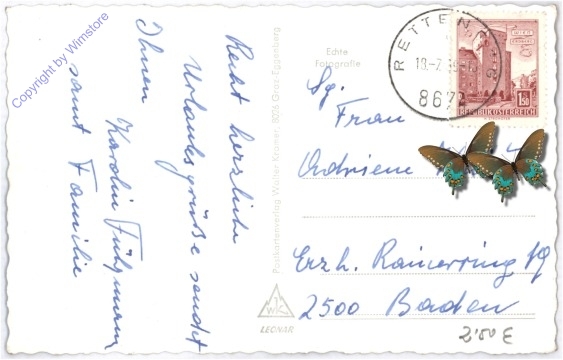 Copyright by Wimstore
Recht herzliche
Urlaubsgrüße sendet
Ihnen
Karolin
samt Familie
Postkartenverlag Kramer, 8020 Graz-Eggenberg
Echte
Fotografie
LEONAR
RETTEN
18.-7.
8672
1.50
REPUBLIK ÖSTERREICH
Sg.
Frau
Adriene
Erzh. Rainerring 19
2500 Baden
2.00 €